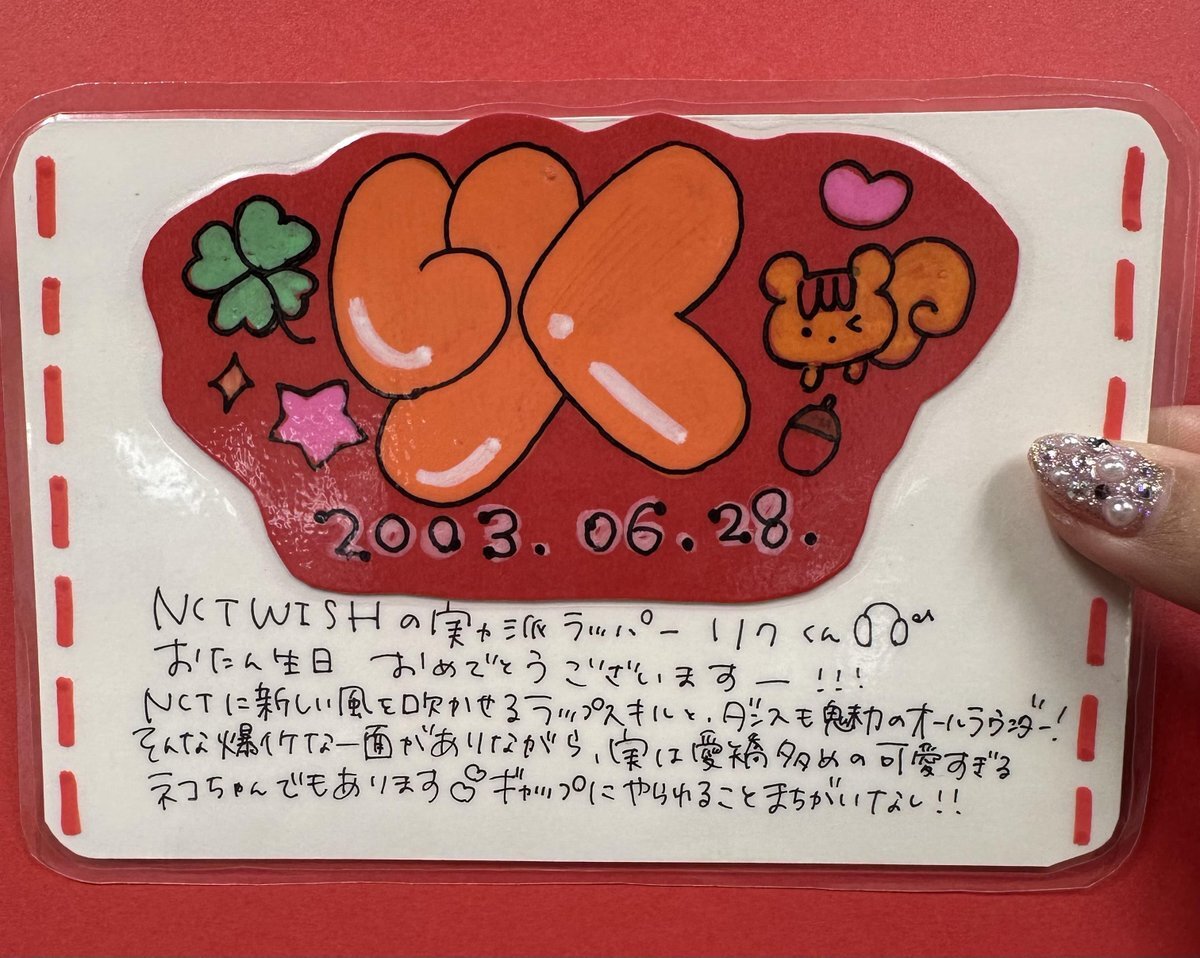 2003.06.28.
NCT WISHの実力派ラッパー リクくん
おたん生日 おめでとうございますー!!!
NCTに新しい風を吹かせるラップスキルと、ダンスも魅力のオールラウンダー!
そんな爆イケな一面がありながら、実は愛矯多めの可愛すぎる
ネコちゃんでもあります♡ギャップにやられることまちがいなし!!